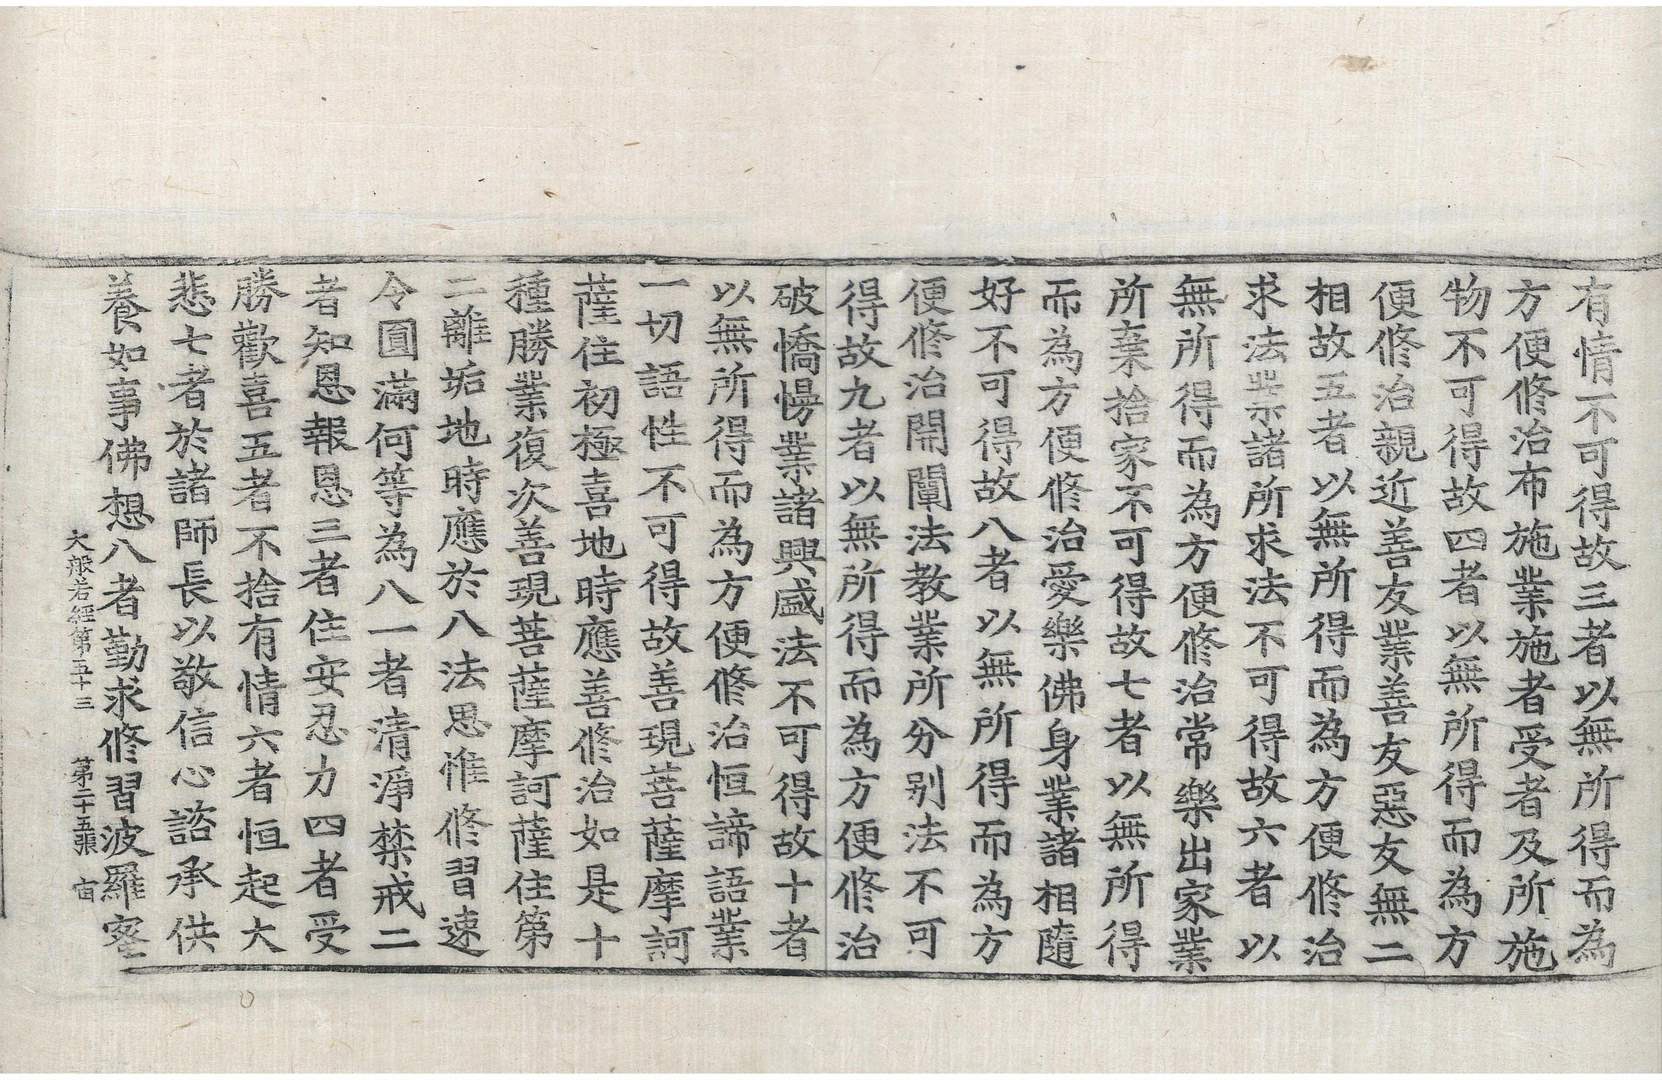 有情不可得故三者以無所得而為
方便修治布施業施者受者及所施
物不可得故四者以無所得而為方
便修治親近善友業善友惡友無二
相故五者以無所得而為方便修治
求法業諸所求法不可得故六者以
無所得而為方便修治常樂出家業
所棄捨家不可得故七者以無所得
而為方便修治愛樂佛身業諸相隨
好不可得故八者以無所得而為方
便修治開闡法教業所分别法不可
得故九者以無所得而為方便修治
破憍慢業諸興盛法不可得故十者
以無所得而為方便修治恒諦語業
一切語性不可得故善現菩薩摩訶
薩住初極喜地時應善修治如是十
種勝業復次善現菩薩摩訶薩住第
二離垢地時應於八法思惟修習速
令圓滿何等為八一者清淨禁戒二
者知恩報恩三者住安忍力四者受
勝歡喜五者不捨有情六者恒起大
悲七者於諸師長以敬信心諮承供
養如事佛想八者勤求修習波羅蜜
大般若經第五十三 第二十五張 宙